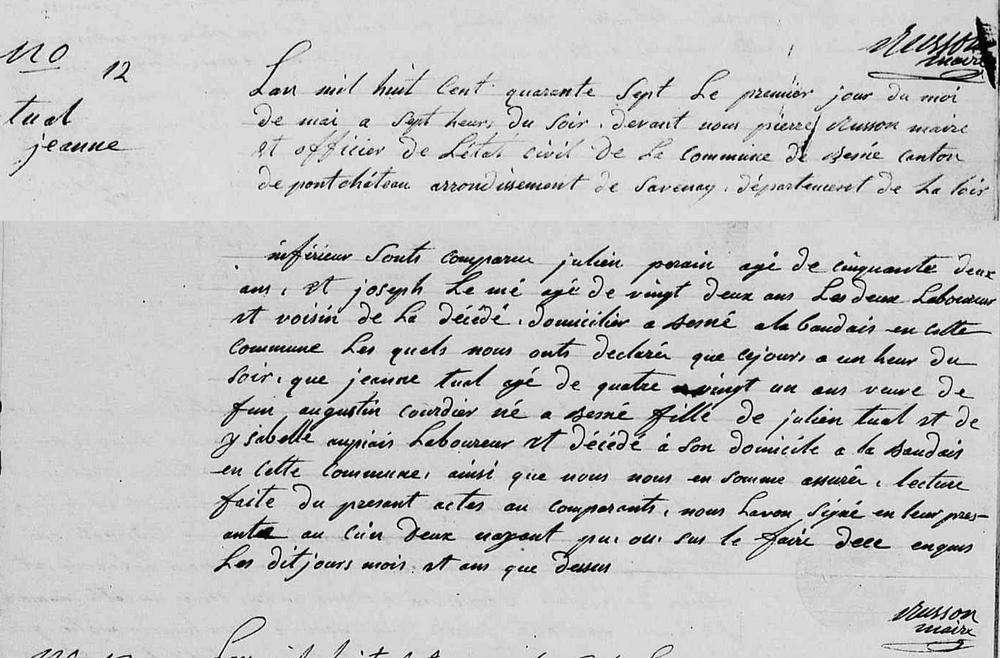 No 12
tual
jeanne
Russon
maire
Lan mil huit Cent quarante Sept Le premier jour du moi
de mai a Sept heurs du Soir. devant nous pierre Russon maire
et officier de Létat civil de La Commune de besné canton
de pontchâteau arrondissement de Savenay. département de La Loir
inférieur Sonts comparru julien perain agé de cinquante deux
ans, et joseph Le mé agé de vingt deux ans Les deux Laboureur
et voisin de La décédé. domicilier a besné a la baudais en cette
Commune Les quels nous onts declarer que cejours a un heur du
Soir, que jeanne tual agé de quatre vingt un ans veuve de
fun augustin courdier né a besné fille de julien tual et de
ysabelle Laboureur et décédé à Son domicile a la baudais
en Cette Commune, ainsi que nous nous en somme assurér, lecture
faite du present actes au comparants, nous Lavon Signé en leur pres-
ante au deux nayant sur le faire
Les dit jours mois et ans que dessus
Russon
maire